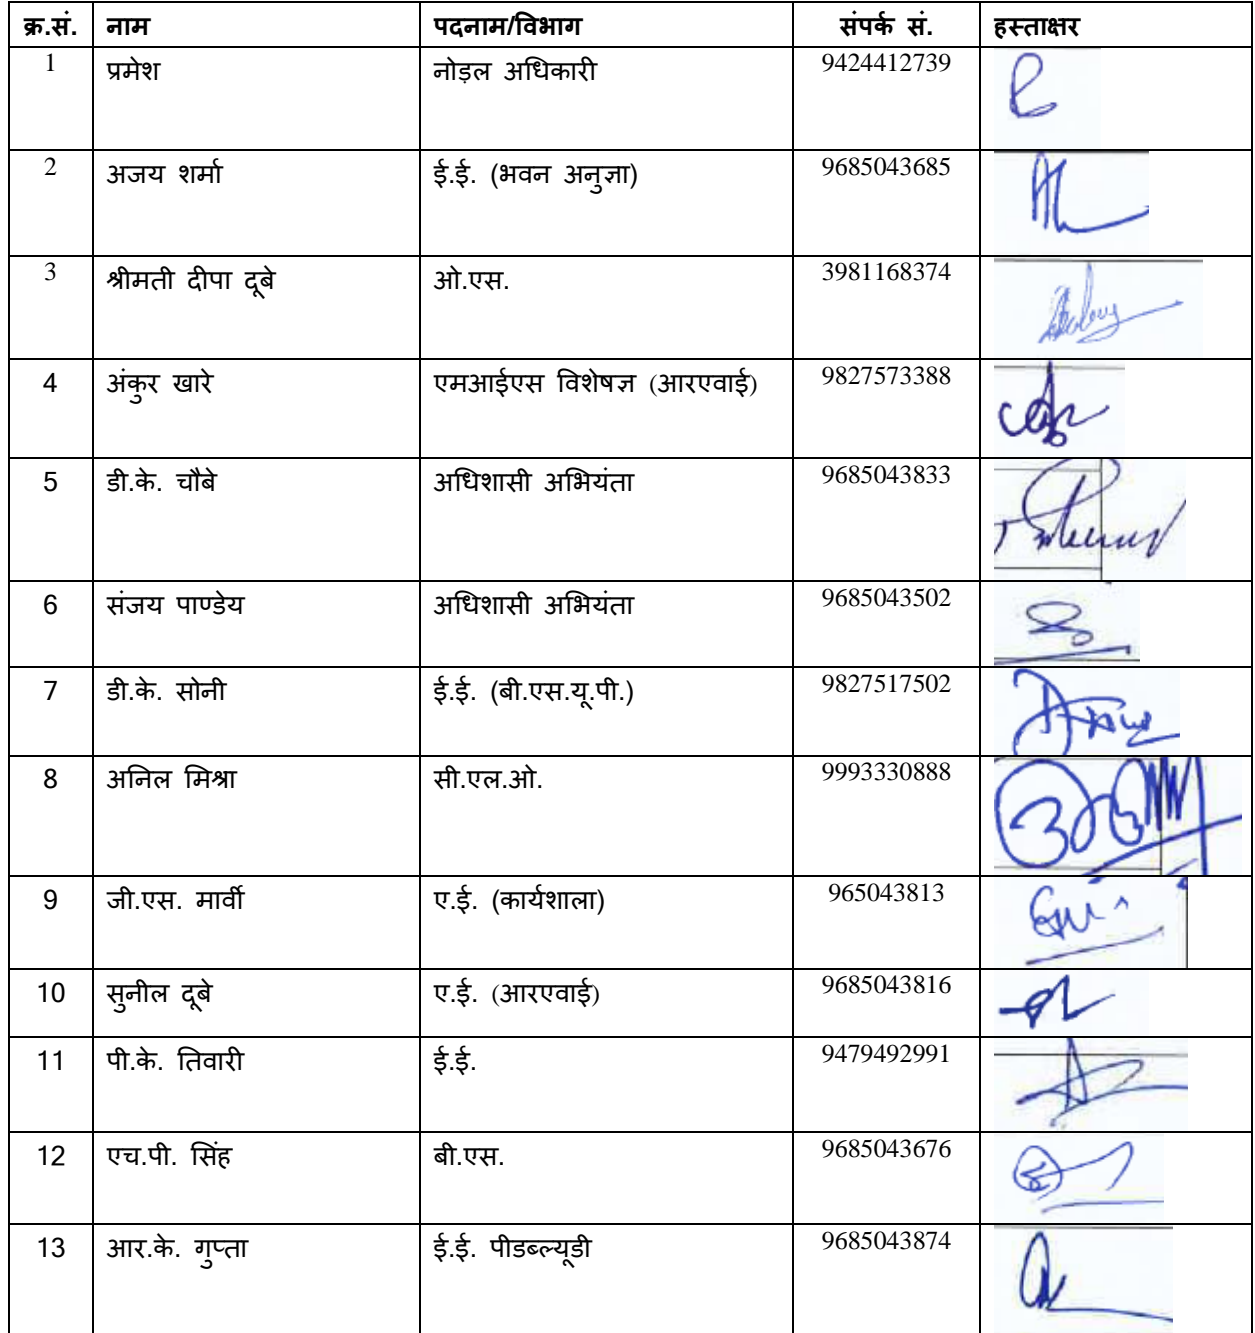 क्र.सं. नाम पदनाम/विभाग संपर्क सं. हस्ताक्षर
1 प्रमेश नोड़ल अधिकारी 9424412739
2 अजय शर्मा ई.ई. (भवन अनुज्ञा) 9685043685
3 श्रीमती दीपा दूबे ओ.एस. 3981168374
4 अंकुर खारे एमआईएस विशेषज्ञ (आरएवाई) 9827573388
5 डी.के. चौबे अधिशासी अभियंता 9685043833
6 संजय पाण्डेय अधिशासी अभियंता 9685043502
7 डी.के. सोनी ई.ई. (बी.एस.यू.पी.) 9827517502
8 अनिल मिश्रा सी.एल.ओ. 9993330888
9 जी.एस. मार्वी ए.ई. (कार्यशाला) 965043813
10 सुनील दूबे ए.ई. (आरएवाई) 9685043816
11 पी.के. तिवारी ई.ई. 9479492991
12 एच.पी. सिंह बी.एस. 9685043676
13 आर.के. गुप्ता ई.ई. पीडब्ल्यूडी 9685043874